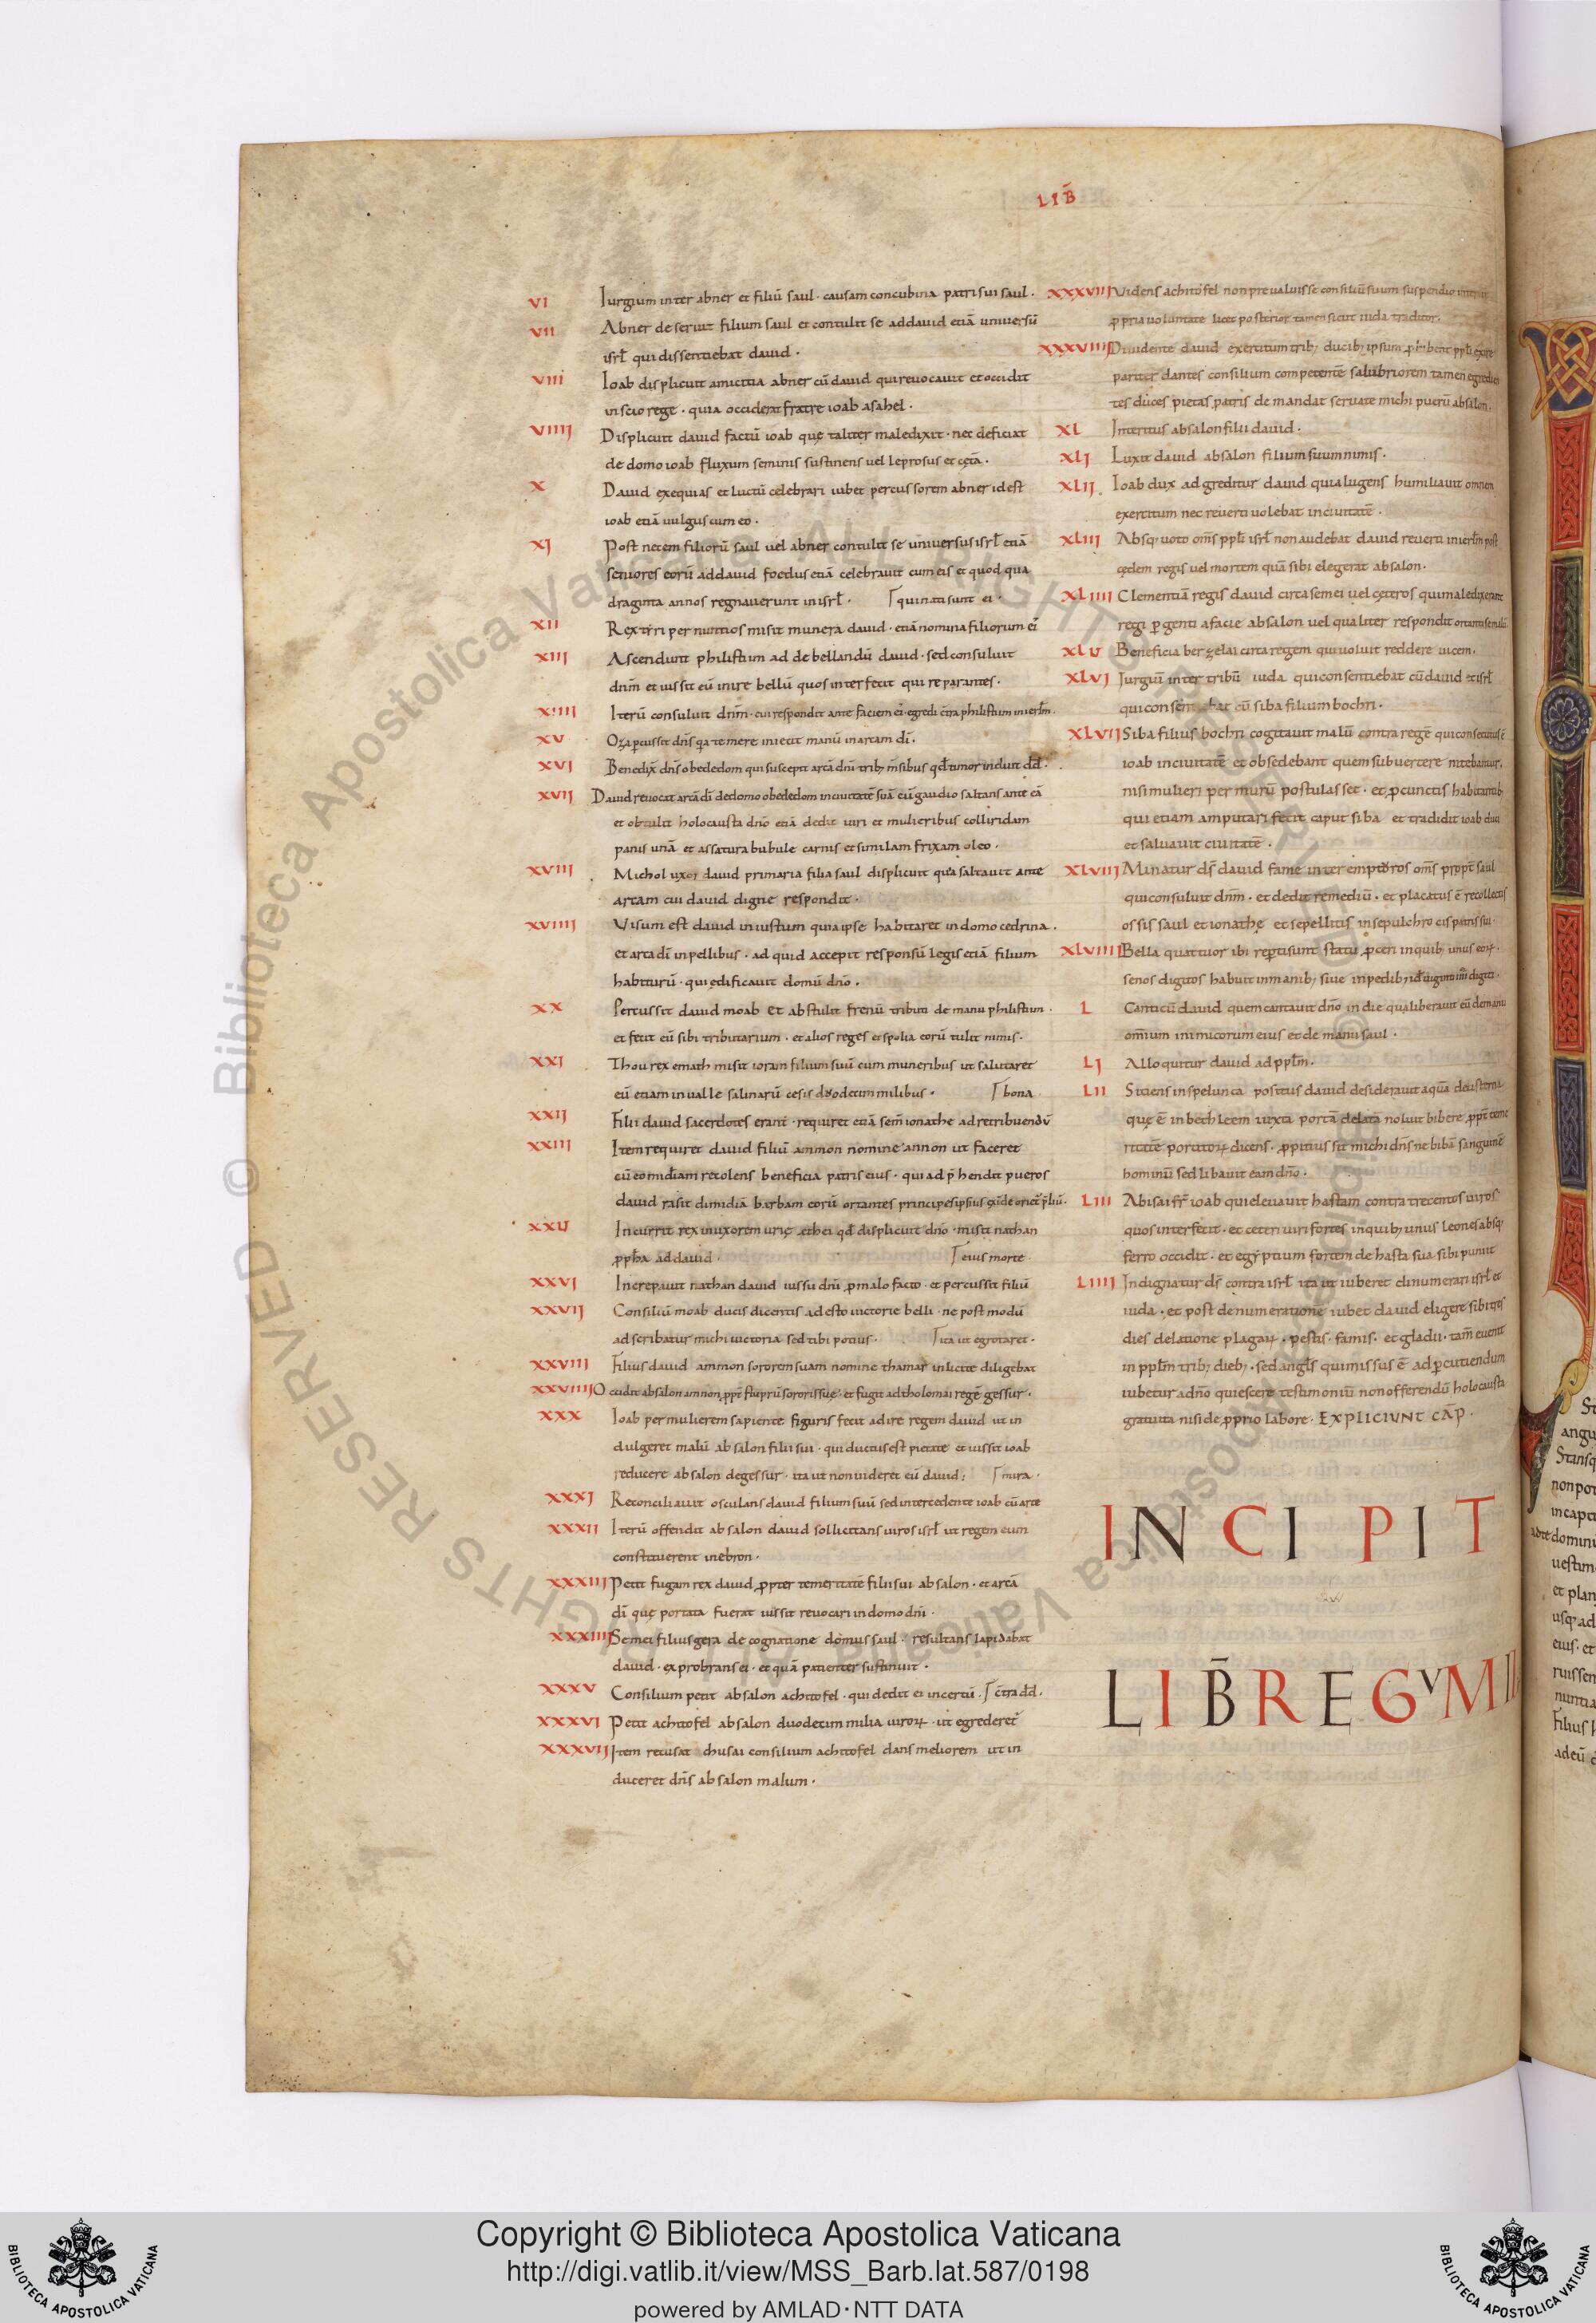 LIB̄
VI Iurgium inter abner et filiū saul · causam concubina patris sui saul ·
VII Abner deseruit filium saul et contulit se addauid etiā uniuersū
isrł qui dissentiebat dauid ·
VIII Ioab displicuit amicitia abner cū dauid qui reuocauit et occidit
inscio rege · quia occiderat fratrē ioab asahel ·
VIIII Displicuit dauid factū ioab quę taliter maledixit · nec deficiat
de domo ioab fluxum seminis sustinens uel leprosus et cetā ·
X Dauid exequias et luctū celebrari iubet percussorem abner idest
ioab etiā uulgus cum eo ·
XI Post necem filiorū saul uel abner contulit se uniuersus isrł etiā
seniores eorū addauid foedus etiā celebrauit cum eis et quod qua
draginta annos regnauerunt in isrł · qui nati sunt ei ·
XII Rex tiri per nuntios misit munera dauid · etiā nomina filiorum ei
XIII Ascendunt philistum ad debellandū dauid · sed consuluit
dnm̄ et iussit eū inire bellū quos interfecit qui reparantes ·
XIIII Iterū consuluit dnm̄ · cui respondit ante faciem ei · egredi ctra philistum in ierłm ·
XV Oza pcussit dns̄ qa temere iniecit manū in arcam dī ·
XVI Benedix̄ dns̄ obededom qui suscepit arcā dnī trib; m̄sibus qđ timor induit dd̄ ·
XVII Dauid reuocat arcā dī de domo obededom in ciuitatē suā cū gaudio saltans ante eā
et obtulit holocausta dnō etiā dedit uiri et mulieribus colliridam
panis unā et assatura bubule carnis et similam frixam oleo ·
XVIII Michol uxor dauid primaria filia saul displicuit qu'a saltauit ante
arcam cui dauid digne respondit ·
XVIIII Uisum est dauid iniustum quia ipse habitaret in domo cedrina ·
et arca dī in pellibus · ad quid accepit responsū legis etiā filium
habiturū · qui ędificauit domū dnō ·
XX Percussit dauid moab et abstulit frenū tributi de manu philistum ·
et fecit eū sibi tributarium · et alios reges et spolia eorū tulit nimis ·
XXI Thou rex emath misit ioram filium suū cum muneribus ut salutaret
eū etiam in ualle salinarū cesis duodecim milibus · bona
XXII Filii dauid sacerdotes erant · requiret etiā sem̄ ionathe ad retribuendū
XXIII Item requiret dauid filiū ammon nomine annon ut faceret
eū eo midiam recolens beneficia patris eius · qui adp̄hendit pueros
dauid rasit dimidiā barbam eorū
XXV Incurrit rex in uxorem urię ethei qđ displicuit dnō · misit nathan
ppħa addauid · eius morte
XXVI Increpauit nathan dauid iussu dnī p malo facto · et percussit filiū
XXVII Consiliū moab ducis dicentis adesto uictorie belli · ne post modū
adscribatur michi uictoria sed tibi potius · ita ut egrotaret ·
XXVIII Filius dauid ammon sororem suam nomine thamar inlicite diligebat
XXVIIII Occidit absalon amnon ppt̄ stuprū sororis suę · et fugit ad tholomai regē gessur ·
XXX Ioab per mulierem sapiente figuris fecit adire regem dauid ut in
dulgeret malū absalon filii sui · qui ductus est pietate et iussit ioab
reducere absalon de gessur · ita ut non uideret eū dauid ; mira ·
XXXI Reconciliauit osculans dauid filium suū sed intercedente ioab cū arte
XXXII Iterū offendit absalon dauid sollicitans uiros isrł ut regem eum
constituerent inebron ·
XXXIII Petit fugam rex dauid ppter temeritatē filii sui absalon · et arcā
dī quę portata fuerat iussit reuocari in domo dnī ·
XXXIIII Semei filius gera de cognatione domus saul · resultans lapidabat
dauid · exprobrans ei · et quā patienter sustinuit ·
XXXV Consilium petit absalon achitofel · qui dedit ei incertū · c̄tra dd̄ ·
XXXVI Petit achitofel absalon duodecim milia uiroꝝ · ut egrederet̄
XXXVII Item recusat chusai consilium achitofel dans meliorem ut in
duceret dns̄ absalon malum ·
XXXVIII Uidens achitofel non preualuisse consiliū suum suspendio
ppria uoluntate licet posterior tamen sicut iuda traditor ·
XXXVIIII Diuidente dauid exercitum trib; ducib; ipsum phibent ppłi exire
pariter dantes consilium competentē salubriorem tamen egredien
tes duces pietas patris demandat seruate michi puerū absalon ·
XL Interitus absalon filii dauid ·
XLI Luxit dauid absalon filium suum nimis ·
XLII Ioab dux adgreditur dauid quia lugens humiliauit omnem
exercitum nec reuerti uolebat in ciuitatē ·
XLIII Absq; uoto oms̄ ppłi isrł non audebat dauid reuerti in ierłm post
cędem regis uel mortem quā sibi elegerat absalon ·
XLIIII Clementiā regis dauid circa semei uel cęteros qui maledixerant
regi pgenti a facie absalon uel qualiter respondit
XLV Beneficia berzelai circa regem qui uoluit reddere uicem ·
XLVI Iurgiū inter tribū iuda qui consentiebat cū dauid et isrł
qui consentiebat cū siba filium bochri ·
XLVII Siba filius bochri cogitauit malū contra regē qui consecutus ē
ioab in ciuitatē et obsedebant quem subuertere nitebantur ·
nisi mulieri per murū postulasset · et p cunctis habitantib;
qui etiam amputari fecit caput siba et tradidit ioab duci
et saluauit ciuitatē ·
XLVIII Minatur ds̄ dauid fame inter emptoros oms̄ propt̄ saul
qui consuluit dnm̄ · et dedit remediū · et placatus ē recollectis
ossis saul et ionathę et sepellitis in sepulchro cis patris sui ·
XLVIIII Bella quattuor ibi repti sunt statu pceri in quib; unus eoꝝ ·
senos digitos habuit in manib; siue in pedib; idē uiginti iiii digiti ·
L Canticū dauid quem cantauit dnō in die qua liberauit eū de manu
omīum inimicorum eius et de manu saul ·
LI Alloquitur dauid ad ppłm ·
LII Sitiens in spelunca positus dauid desiderauit aquā de cisterna
quę ē in bethleem iuxta portā delatā noluit bibere ppt̄ teme
ritatē portitoꝝ dicens · ppitius sit michi dns̄ ne bibā sanguinē
hominū sed libauit eam dnō ·
LIII Abisai fr̄ ioab qui eleuauit hastam contra trecentos uiros
quos interfecit · et ceteri uiri fortes in quib; unus leones absq;
ferro occidit · et egyptium fortem de hasta sua sibi puniit
LIIII Indignatur ds̄ contra isrł ita ut iuberet dinumerari isrł et
iuda · et post denumerationē iubet dauid eligere sibi tres
dies delatione plagaꝝ · pestis · famis · et gladii · tam̄ euenit
in ppłm trib; dieb; · sed angls̄ qui missus ē ad pcutiendum
iubetur adnō quiescere testimoniū non offerendū holocausta
gratuita nisi de pprio labore · EXPLICIUNT CAP̄ ·
INCIPIT
LIB̄ REGVM II
angu
Stansq
non pot
in capit
domini
uestim
et plan
usq; ad
eius · et
ruissen
nuntia
Filius h
adeū
© Biblioteca Apostolica Vaticana ALL RIGHTS RESERVED
Copyright © Biblioteca Apostolica Vaticana
http://digi.vatlib.it/view/MSS_Barb.lat.587/0198
powered by AMLAD·NTT DATA
BIBLIOTECA APOSTOLICA VATICANA
BIBLIOTECA APOSTOLICA VATICANA